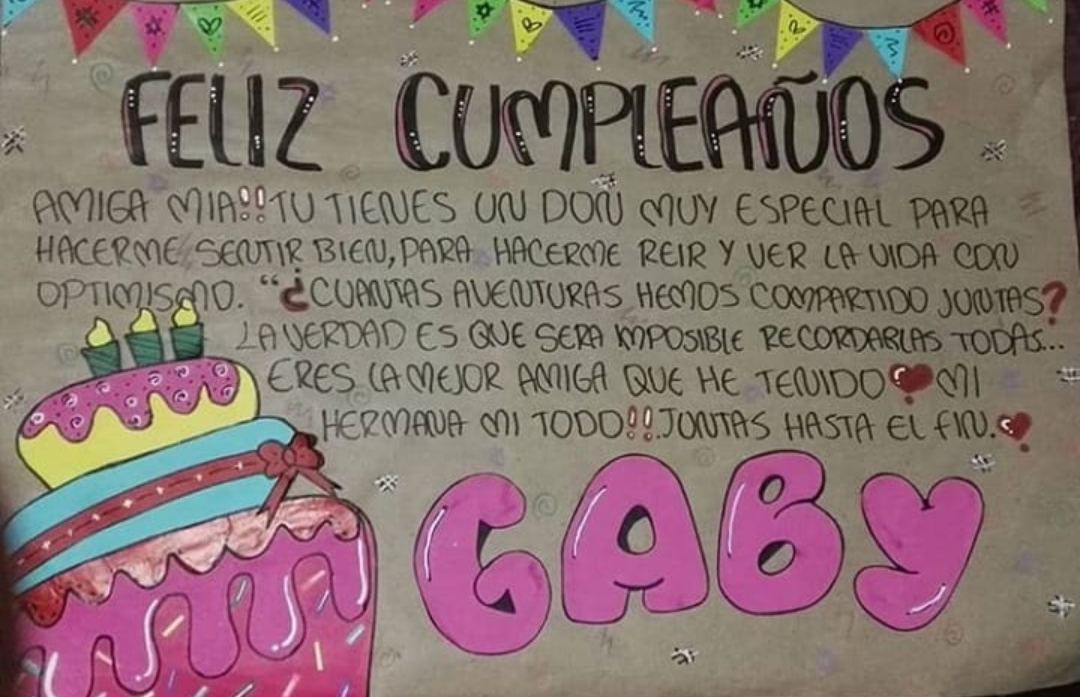 FELIZ CUMPLEAÑOS
AMIGA MIA!! TU TIENES UN DON MUY ESPECIAL PARA
HACERME SENTIR BIEN, PARA HACERME REIR Y VER LA VIDA CON
OPTIMISMO. "¿CUANTAS AVENTURAS HEMOS COMPARTIDO JUNTAS?
LA VERDAD ES QUE SERA IMPOSIBLE RECORDARLAS TODAS...
ERES LA MEJOR AMIGA QUE HE TENIDO ❤ MI
HERMANA MI TODO!! JUNTAS HASTA EL FIN. ❤
GABY